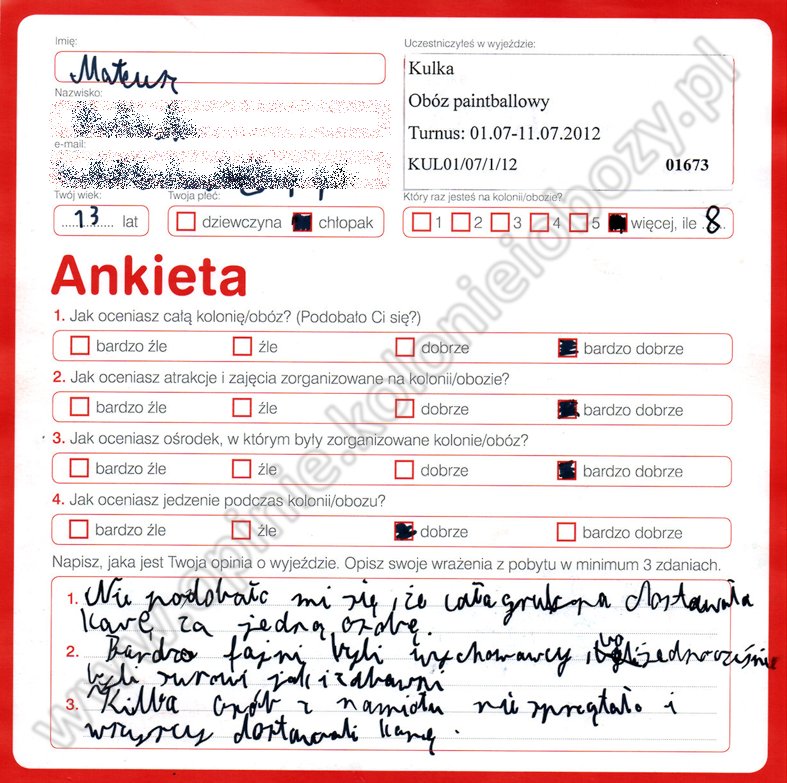 Imię:
Mateusz
Nazwisko:
e-mail:
Twój wiek:
13 lat
Twoja płeć:
dziewczyna chłopak
Uczestniczyłeś w wyjeździe:
Kulka
Obóz paintballowy
Turnus: 01.07-11.07.2012
KUL01/07/1/12 01673
Który raz jesteś na kolonii/obozie?
1 2 3 4 5 więcej, ile 8
Ankieta
1. Jak oceniasz całą kolonię/obóz? (Podobało Ci się?)
bardzo źle źle dobrze bardzo dobrze
2. Jak oceniasz atrakcje i zajęcia zorganizowane na kolonii/obozie?
bardzo źle źle dobrze bardzo dobrze
3. Jak oceniasz ośrodek, w którym były zorganizowane kolonie/obóz?
bardzo źle źle dobrze bardzo dobrze
4. Jak oceniasz jedzenie podczas kolonii/obozu?
bardzo źle źle dobrze bardzo dobrze
Napisz, jaka jest Twoja opinia o wyjeździe. Opisz swoje wrażenia z pobytu w minimum 3 zdaniach.
1. Nie podobało mi się, że cała grupa dostawała
karę za jedną osobę.
2. Bardzo fajni byli wychowawcy, jednocześnie
byli surowi jak i zabawni
3. Kilka osób z namiotu nie sprzątało i
wszyscy dostawali karę.
www.opinie.kolonieiobozy.pl